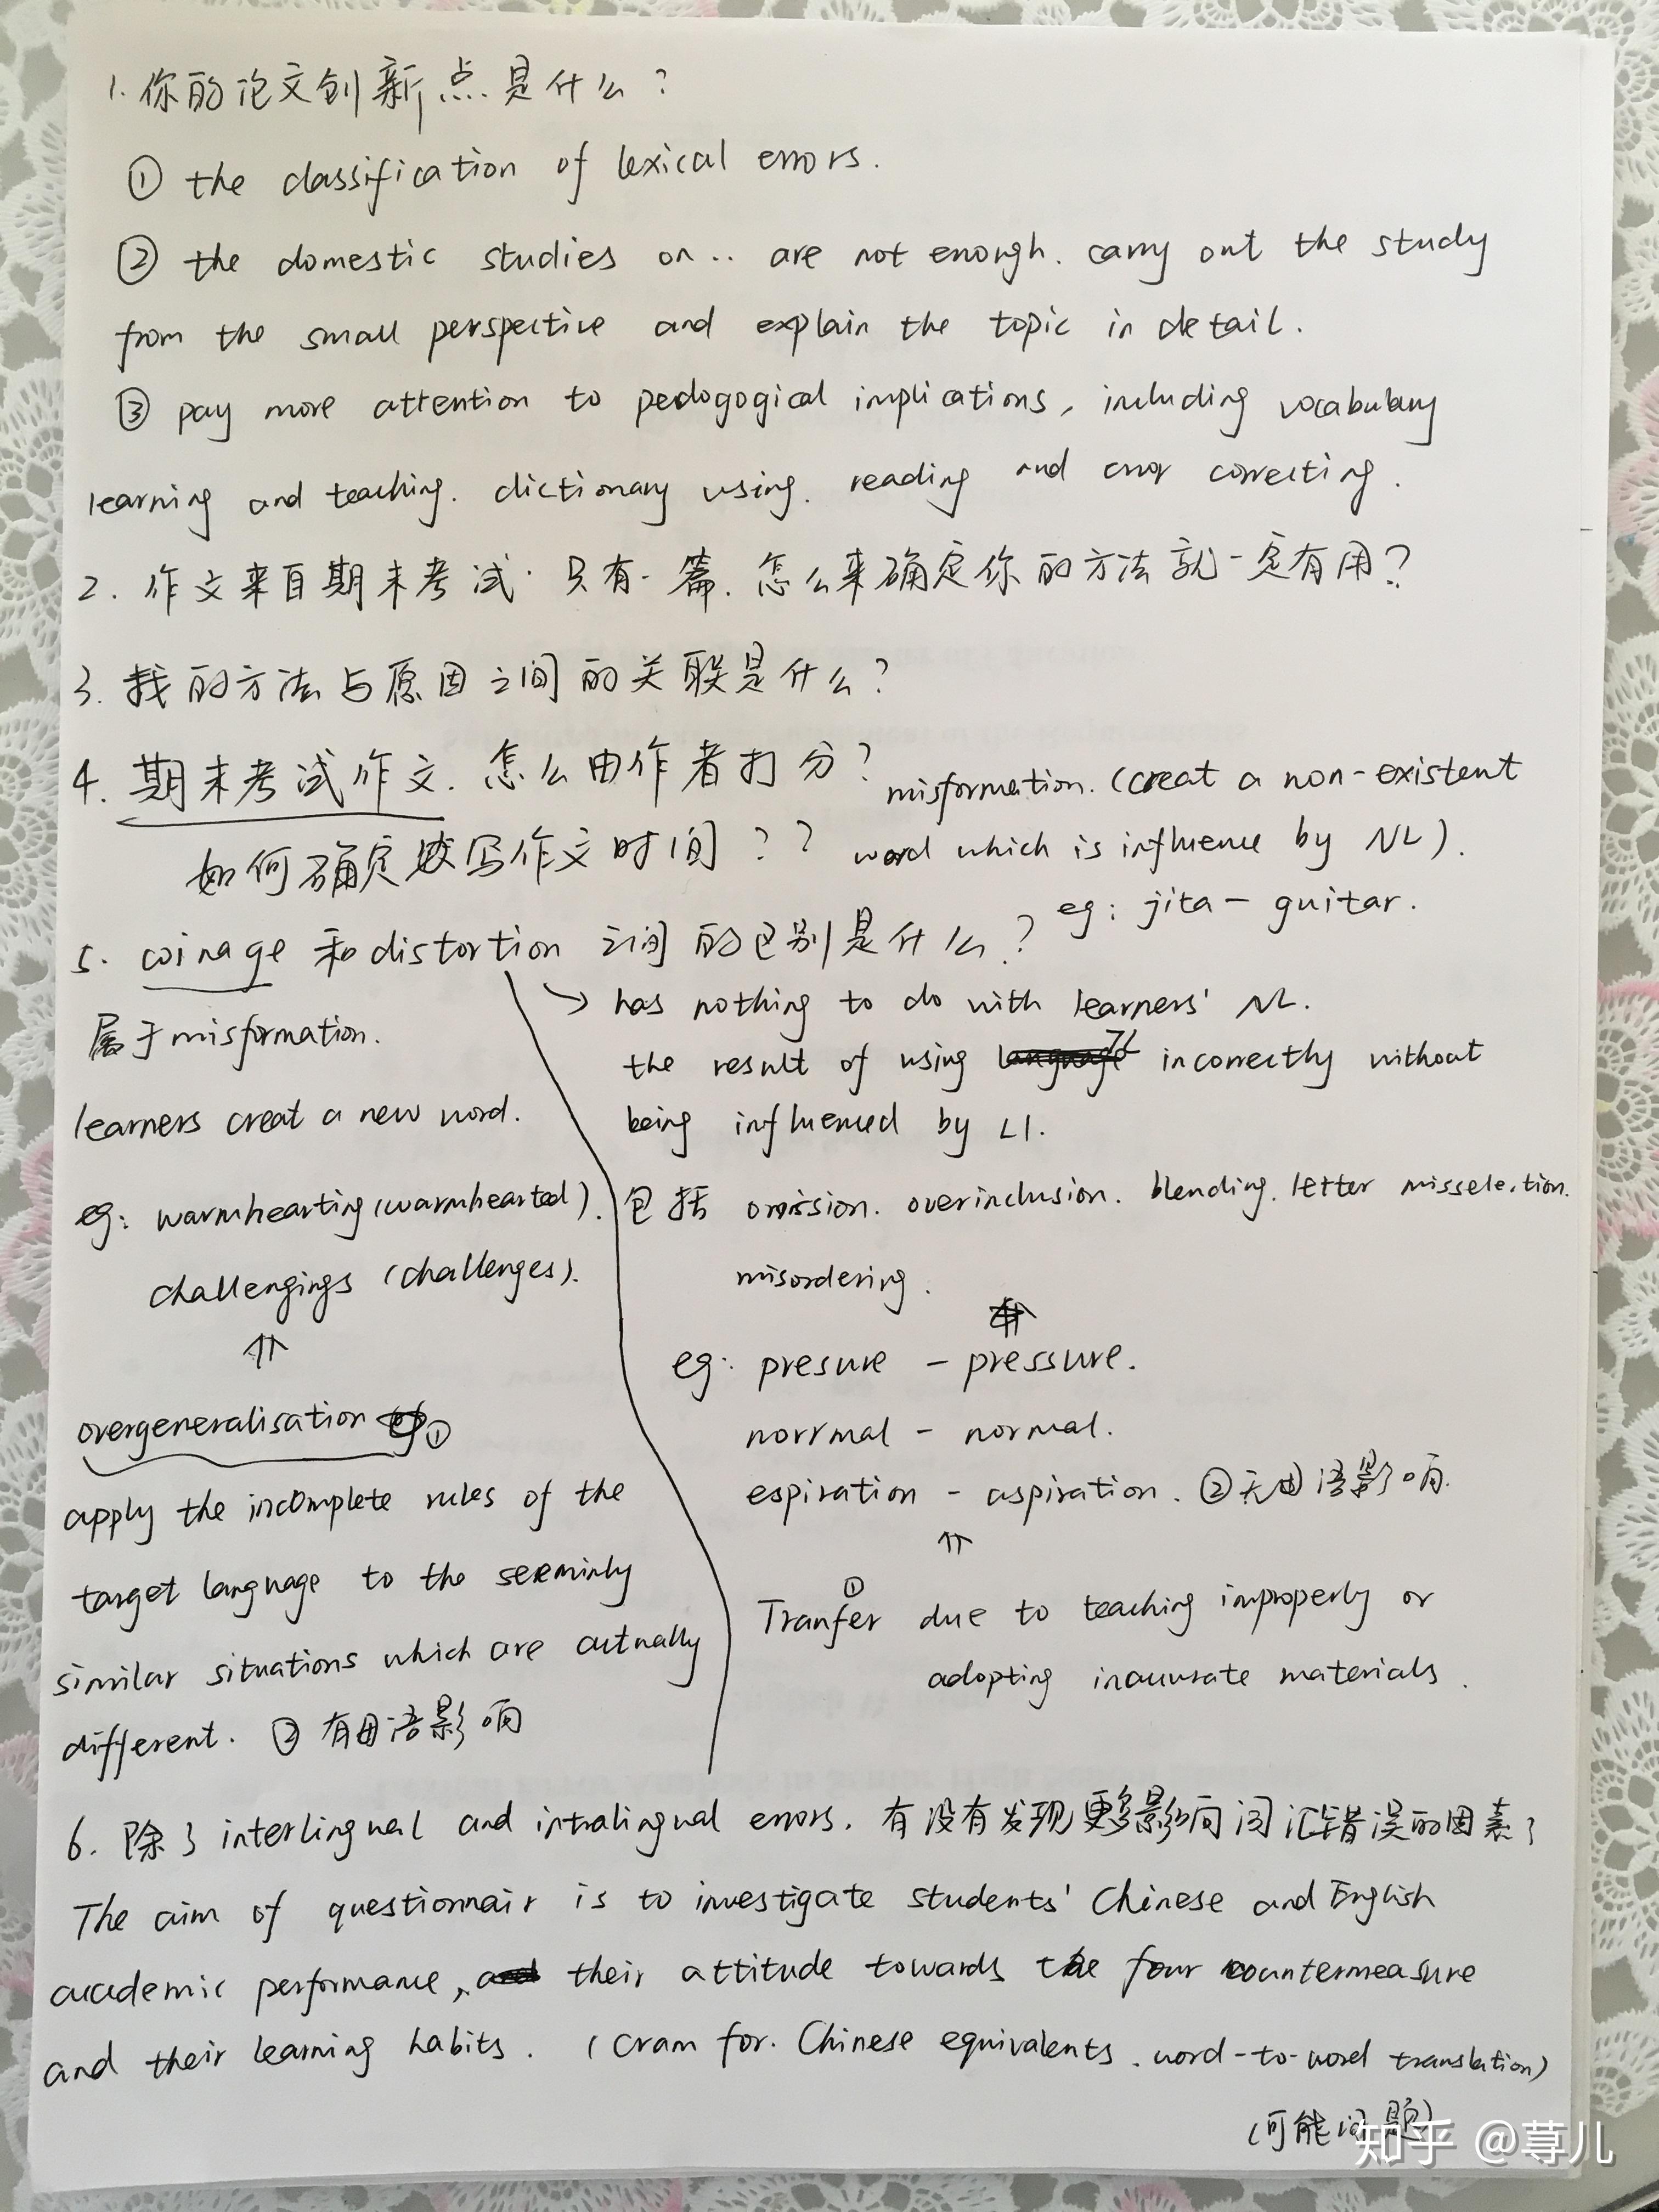 1. 你的论文创新点是什么？
① the classification of lexical errors.
② the domestic studies on .. are not enough. carry out the study
from the small perspective and explain the topic in detail.
③ pay more attention to pedogogical implications, including vocabulary
learning and teaching. dictionary using. reading and error correcting.
2. 作文来自期末考试. 只有一篇. 怎么来确定你的方法就一定有用？
3. 找的方法与原因之间的关联是什么？
4. 期末考试作文. 怎么由作者打分？
如何确定写作文时间？？
misformation. (creat a non-existent
word which is influence by NL).
eg: jita - guitar.
5. coinage 和 distortion 之间的区别是什么？
属于 misformation.
learners creat a new word.
eg: warmhearting (warmhearted).
challengings (challenges).
⇑
overgeneralisation ①
apply the incomplete rules of the
target language to the seeminly
similar situations which are actually
different. ② 有母语影响
→ has nothing to do with learners' NL.
the result of using TL incorrectly without
being influenced by L1.
包括 omission. overinclusion. blending. letter misselection.
misordering.
eg: presure - pressure.
norrmal - normal.
espiration - aspiration. ② 无母语影响.
⇑
① Tranfer due to teaching improperly or
adopting inaccurate materials.
6. 除了 interlingual and intralingual errors. 有没有发现更多影响词汇错误的因素？
The aim of questionnair is to investigate students' Chinese and English
academic performance, their attitude towards the four countermeasure
and their learning habits. (Cram for. Chinese equivalents. word-to-word translation)
(可能问题)
知乎 @荨儿